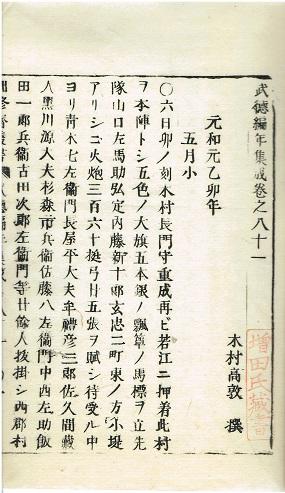 武德編年集成卷之八十一
木村高敦 撰
増田氏蔵書
元和元乙卯年
五月小
〇六日卯ノ刻木村長門守重成再ビ若江ニ押着此村
ヲ本陣トシ五色ノ大旗五本銀ノ瓢簞ノ馬標ヲ立先
隊山口左馬助弘定内藤新十郎玄忠二町東ノ方小堤
アリシゴ火炮三百六十挺弓廿五張ヲ賦シ待受ル中
ヨリ青木七左衛門長屋平大夫牟禮彦三郎佐久間蔵
人黒川源大夫杉森市兵衛佐藤八左衛門中西左助飯
田一郎兵衛古田次郎左衛門等廿餘人抜掛シ西郡村